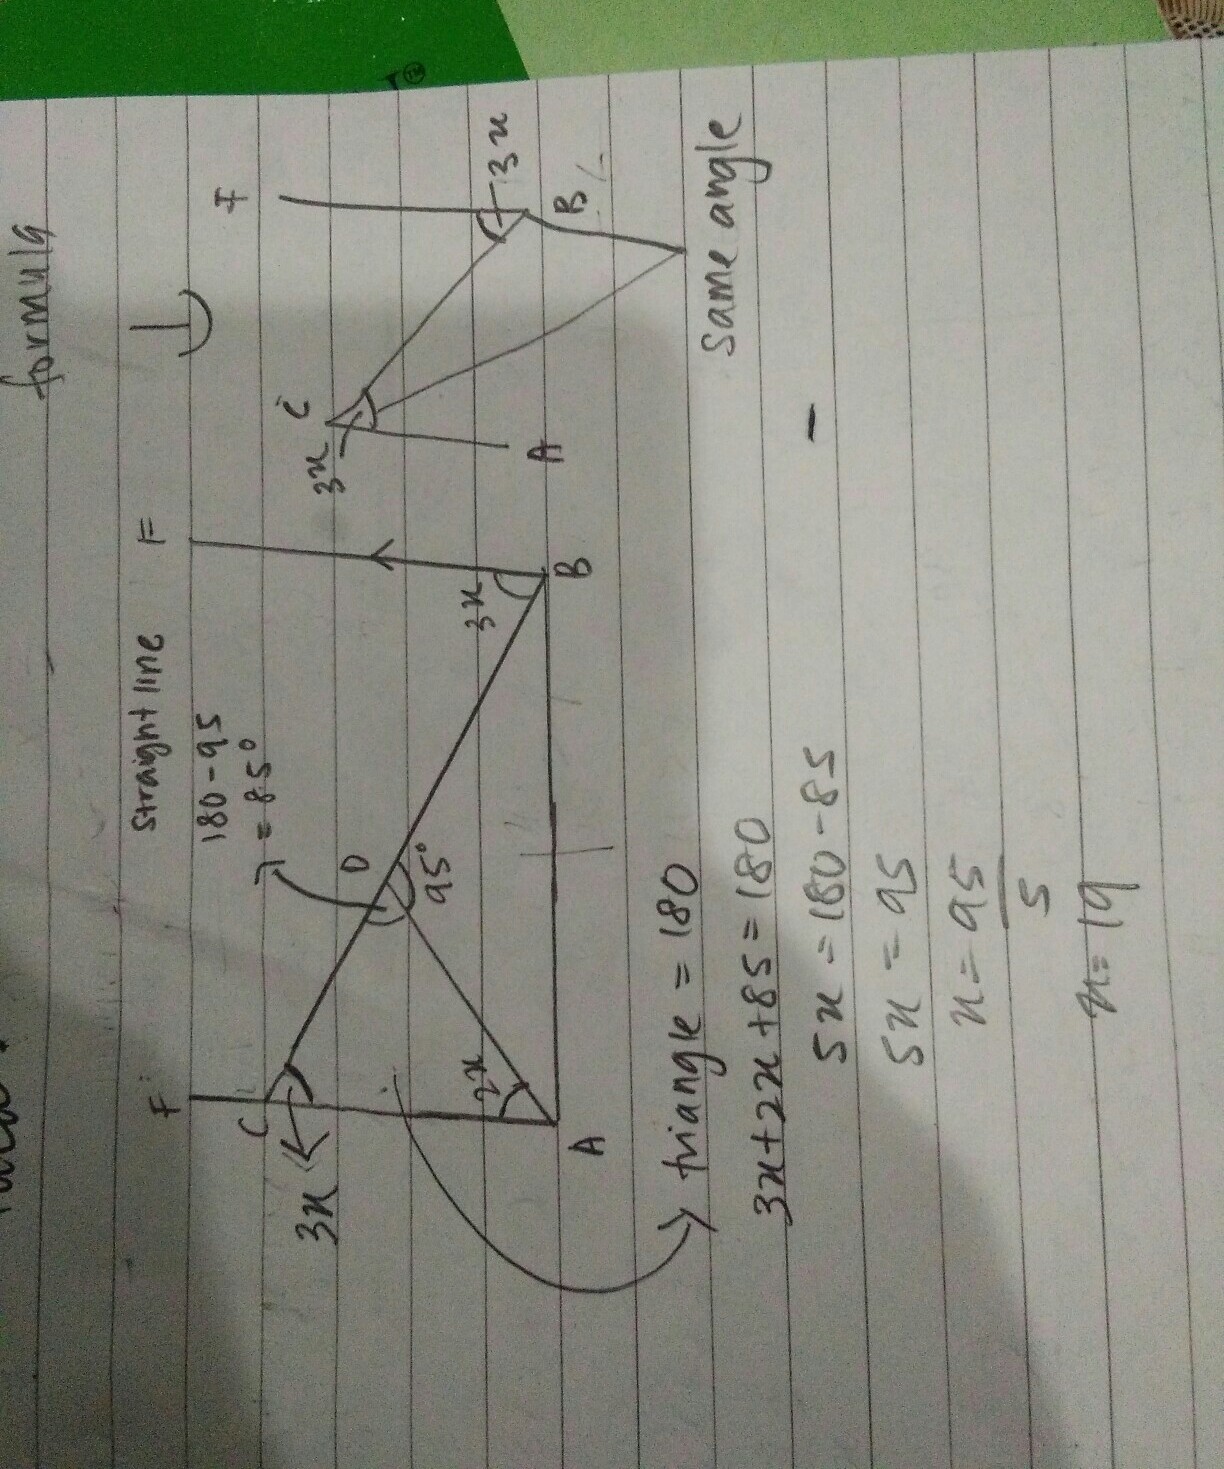 formula
Straight line
180-95
= 85°
F
F
F
C
D
3x
2x
95°
3x
A
B
C
3x
3x
A
B
same angle
triangle = 180
3x+2x+85=180
5x=180-85
5x=95
x=95
5
x=19
TM